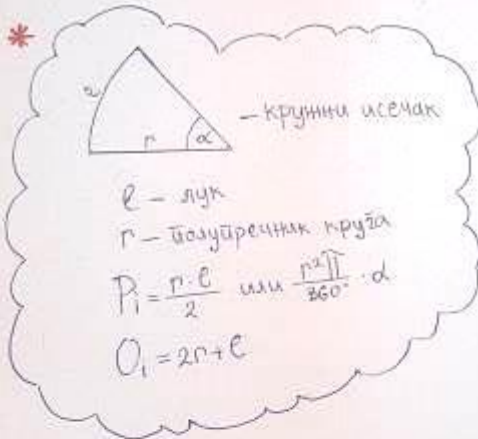 *
ℓ
r α – кружни исечак
ℓ – лук
r – полупречник круга
Pᵢ = r·ℓ/2 или r²π/360° · α
Oᵢ = 2r+ℓ